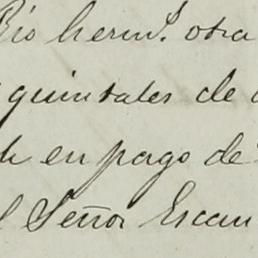 Rio herms. otra
quintales de
en pago de
Señor Escan